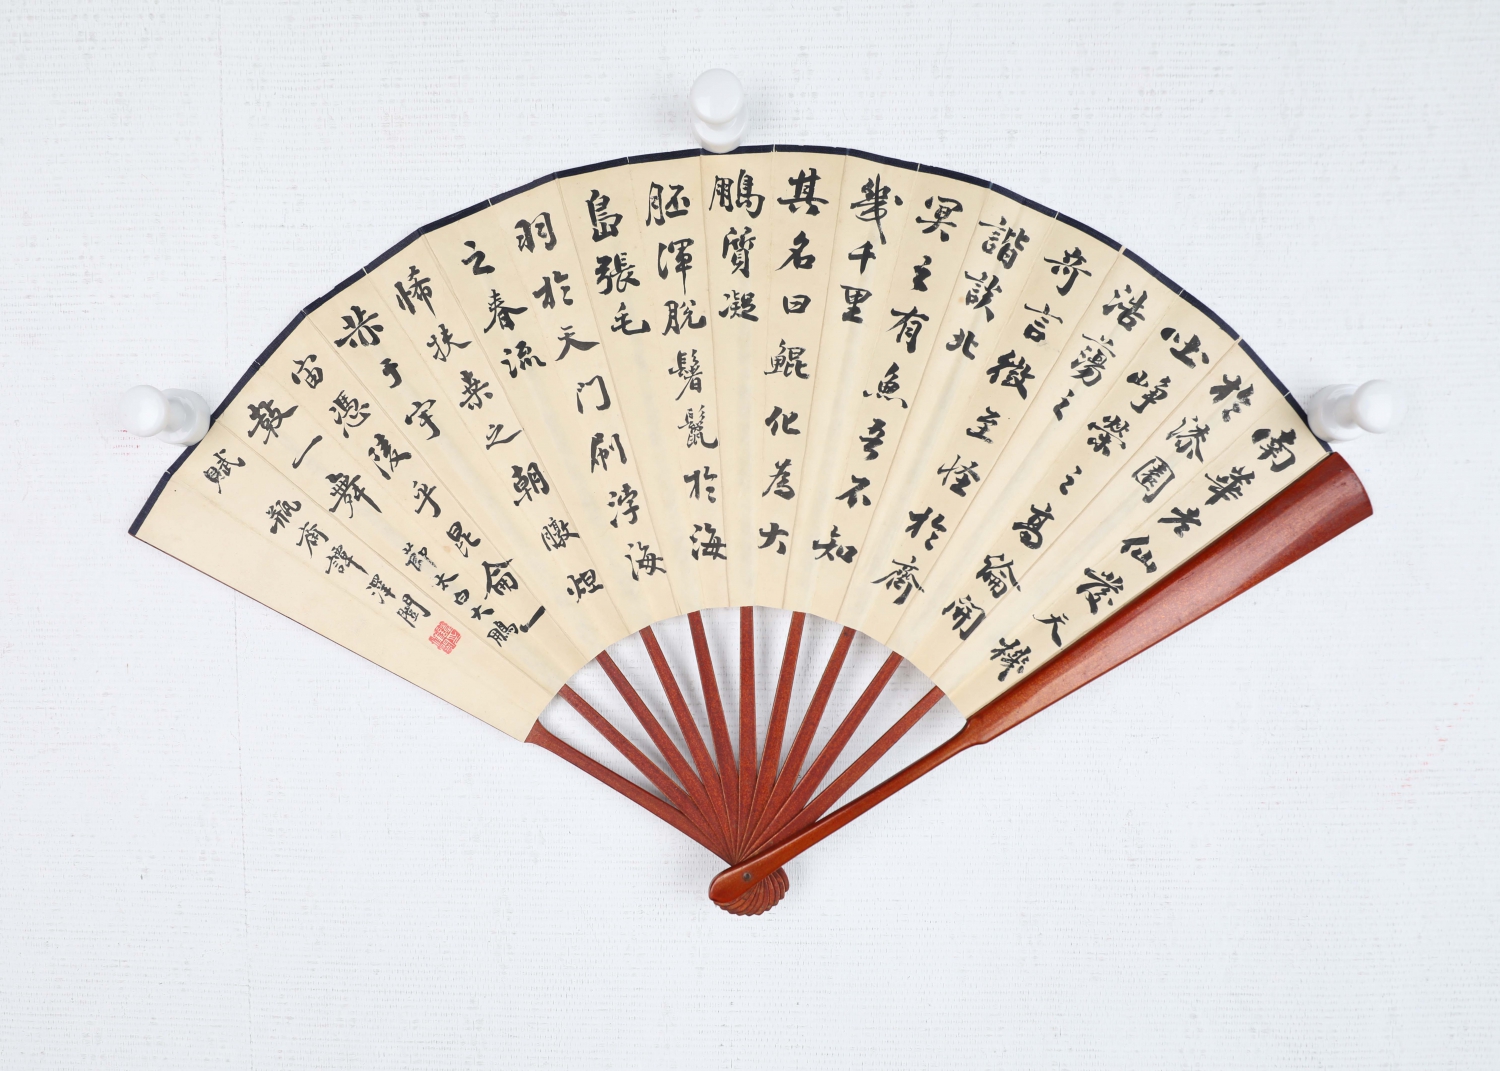 南華老仙發天機
於漆園
吐崢嶸之高論開
浩蕩之
奇言徵至怪於齊
諧談北
冥之有魚吾不知
幾千里
其名曰鯤化為大
鵬質凝
胚渾脫鬐鬣於海
島張毛
羽於天门刷渟海
之春流
晞扶桑之朝暾燀
赫于宇
宙憑陵乎昆侖一
鼓一舞
節太白大鵬
賦
瓶齋譚澤闓